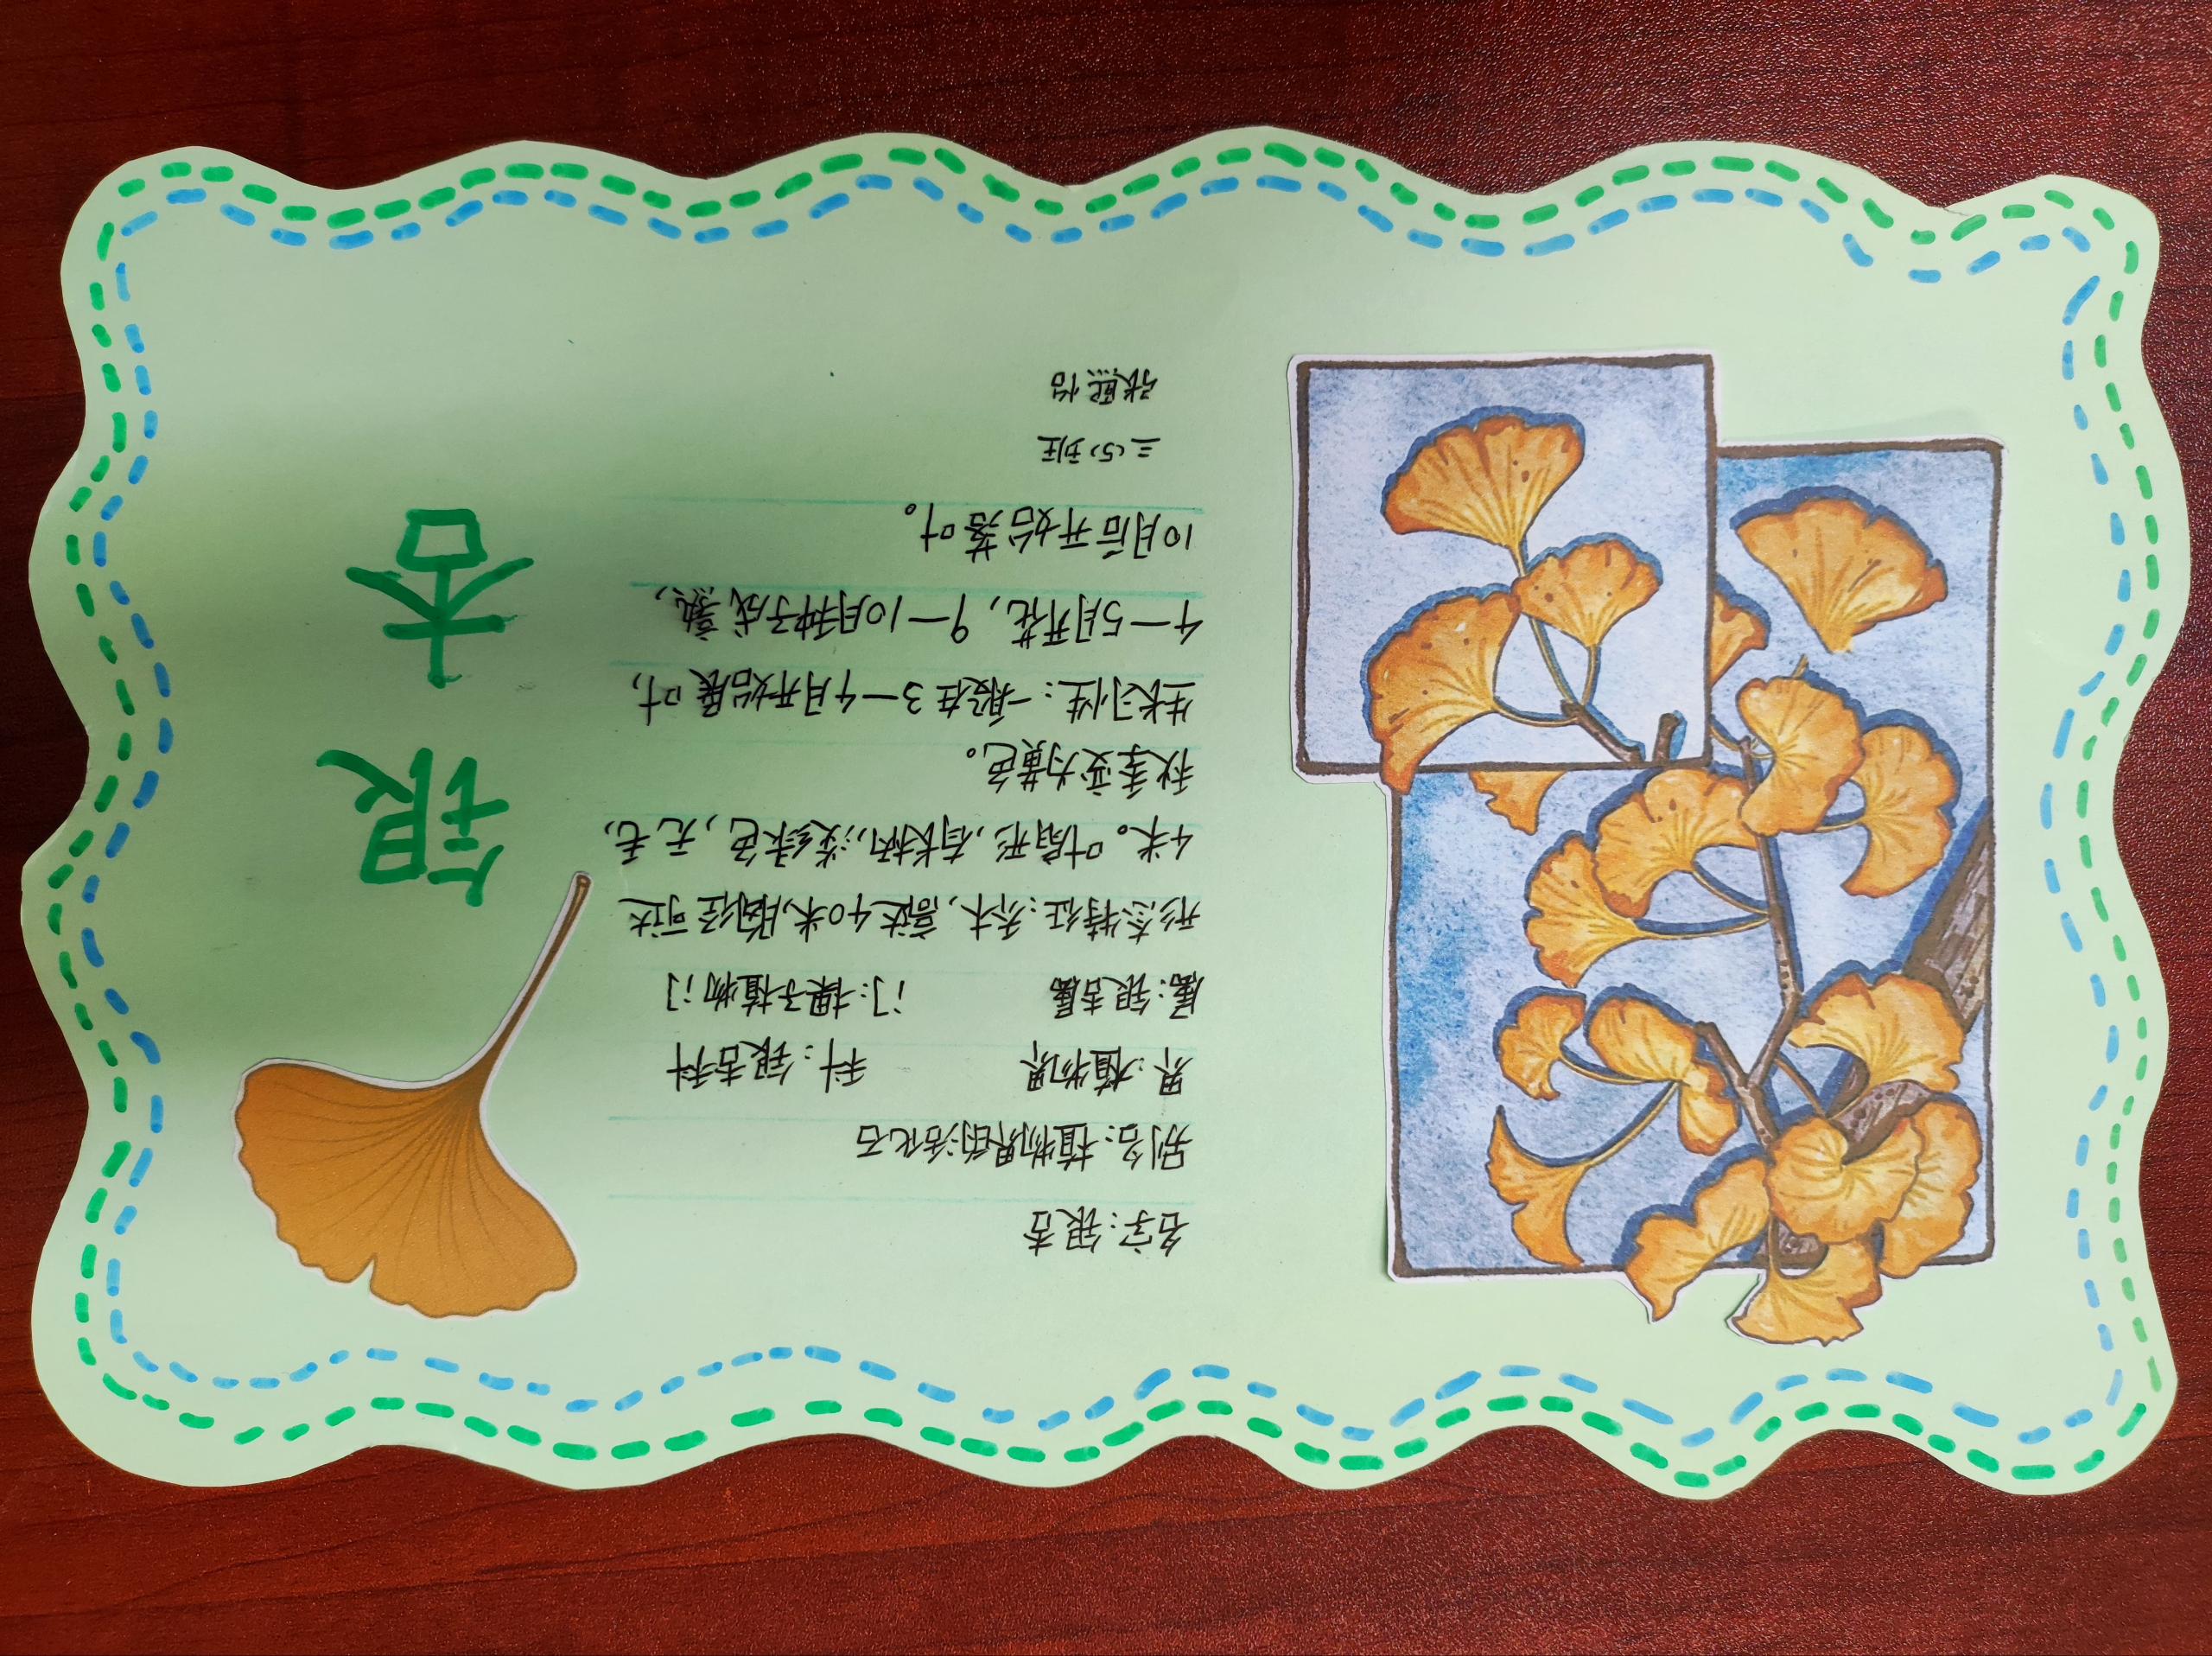 银杏
名字：银杏
别名：植物界的活化石
界：植物界 科：银杏科
属：银杏属 门：裸子植物门
形态特征：乔木，高达40米，胸径可达
4米。叶扇形，有长柄，淡绿色，无毛，
秋季变为黄色。
生长习性：一般在3—4月开始展叶，
4—5月开花，9—10月种子成熟，
10月后开始落叶。
三（5）班
张熙怡